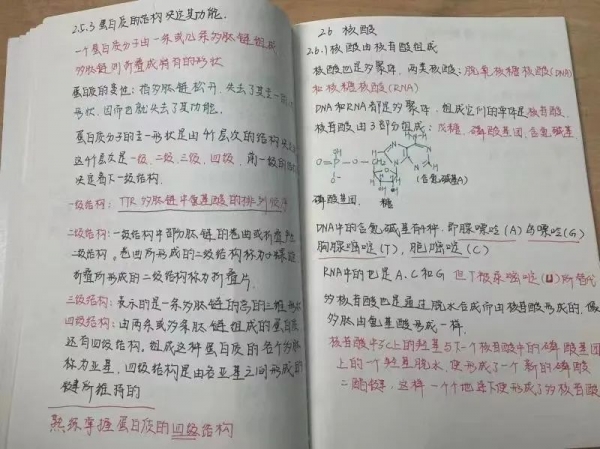 2.5.3 蛋白质的结构决定其功能.
一个蛋白质分子由一条或几条多肽链组成
多肽链则折叠成特有的形状
蛋白质的变性: 指多肽链松开, 失去了其
形状, 因而也就失去了其功能.
蛋白质分子的主一形状是由4个层次的结构
这4个层次是一级、二级、三级、四级. 前一级的
决定着下一级结构.
一级结构: 多肽链中氨基酸的排列顺序
二级结构: 一级结构中部分肽链的卷曲或折叠
二级结构. 卷曲所形成的二级结构称为
折叠所形成的二级结构称为折叠片.
三级结构: 表示的是一条多肽链的总的三维形
四级结构: 由两条或多条肽链组成的蛋白质
还有四级结构. 组成这种蛋白质的各个多肽
称为亚基, 四级结构是由各亚基之间形成的
键所维持的
熟练掌握蛋白质的四级结构
2.6 核酸
2.6.1 核酸由核苷酸组成
核酸也是多聚体. 两类核酸: 脱氧核糖核酸(DNA)
和核糖核酸(RNA)
DNA和RNA都是多聚体. 组成它们的单体是核苷酸.
核苷酸由3部分组成: 戊糖, 磷酸基团, 含氮碱基
(含氮碱基A)
磷酸基团. 糖
DNA中的含氮碱基有4种. 即腺嘌呤(A) 鸟嘌呤(G)
胸腺嘧啶(T), 胞嘧啶(C)
RNA中的也是A、C和G 但T被尿嘧啶(U)所替代
多核苷酸也是通过脱水合成而由核苷酸形成的,
多肽由氨基酸形成一样.
核苷酸中3C上的羟基与下一个核苷酸中的磷酸基团
上的一个羟基脱水, 便形成了一个新的磷酸
二酯键. 这样一个个地连下便形成了多核苷酸